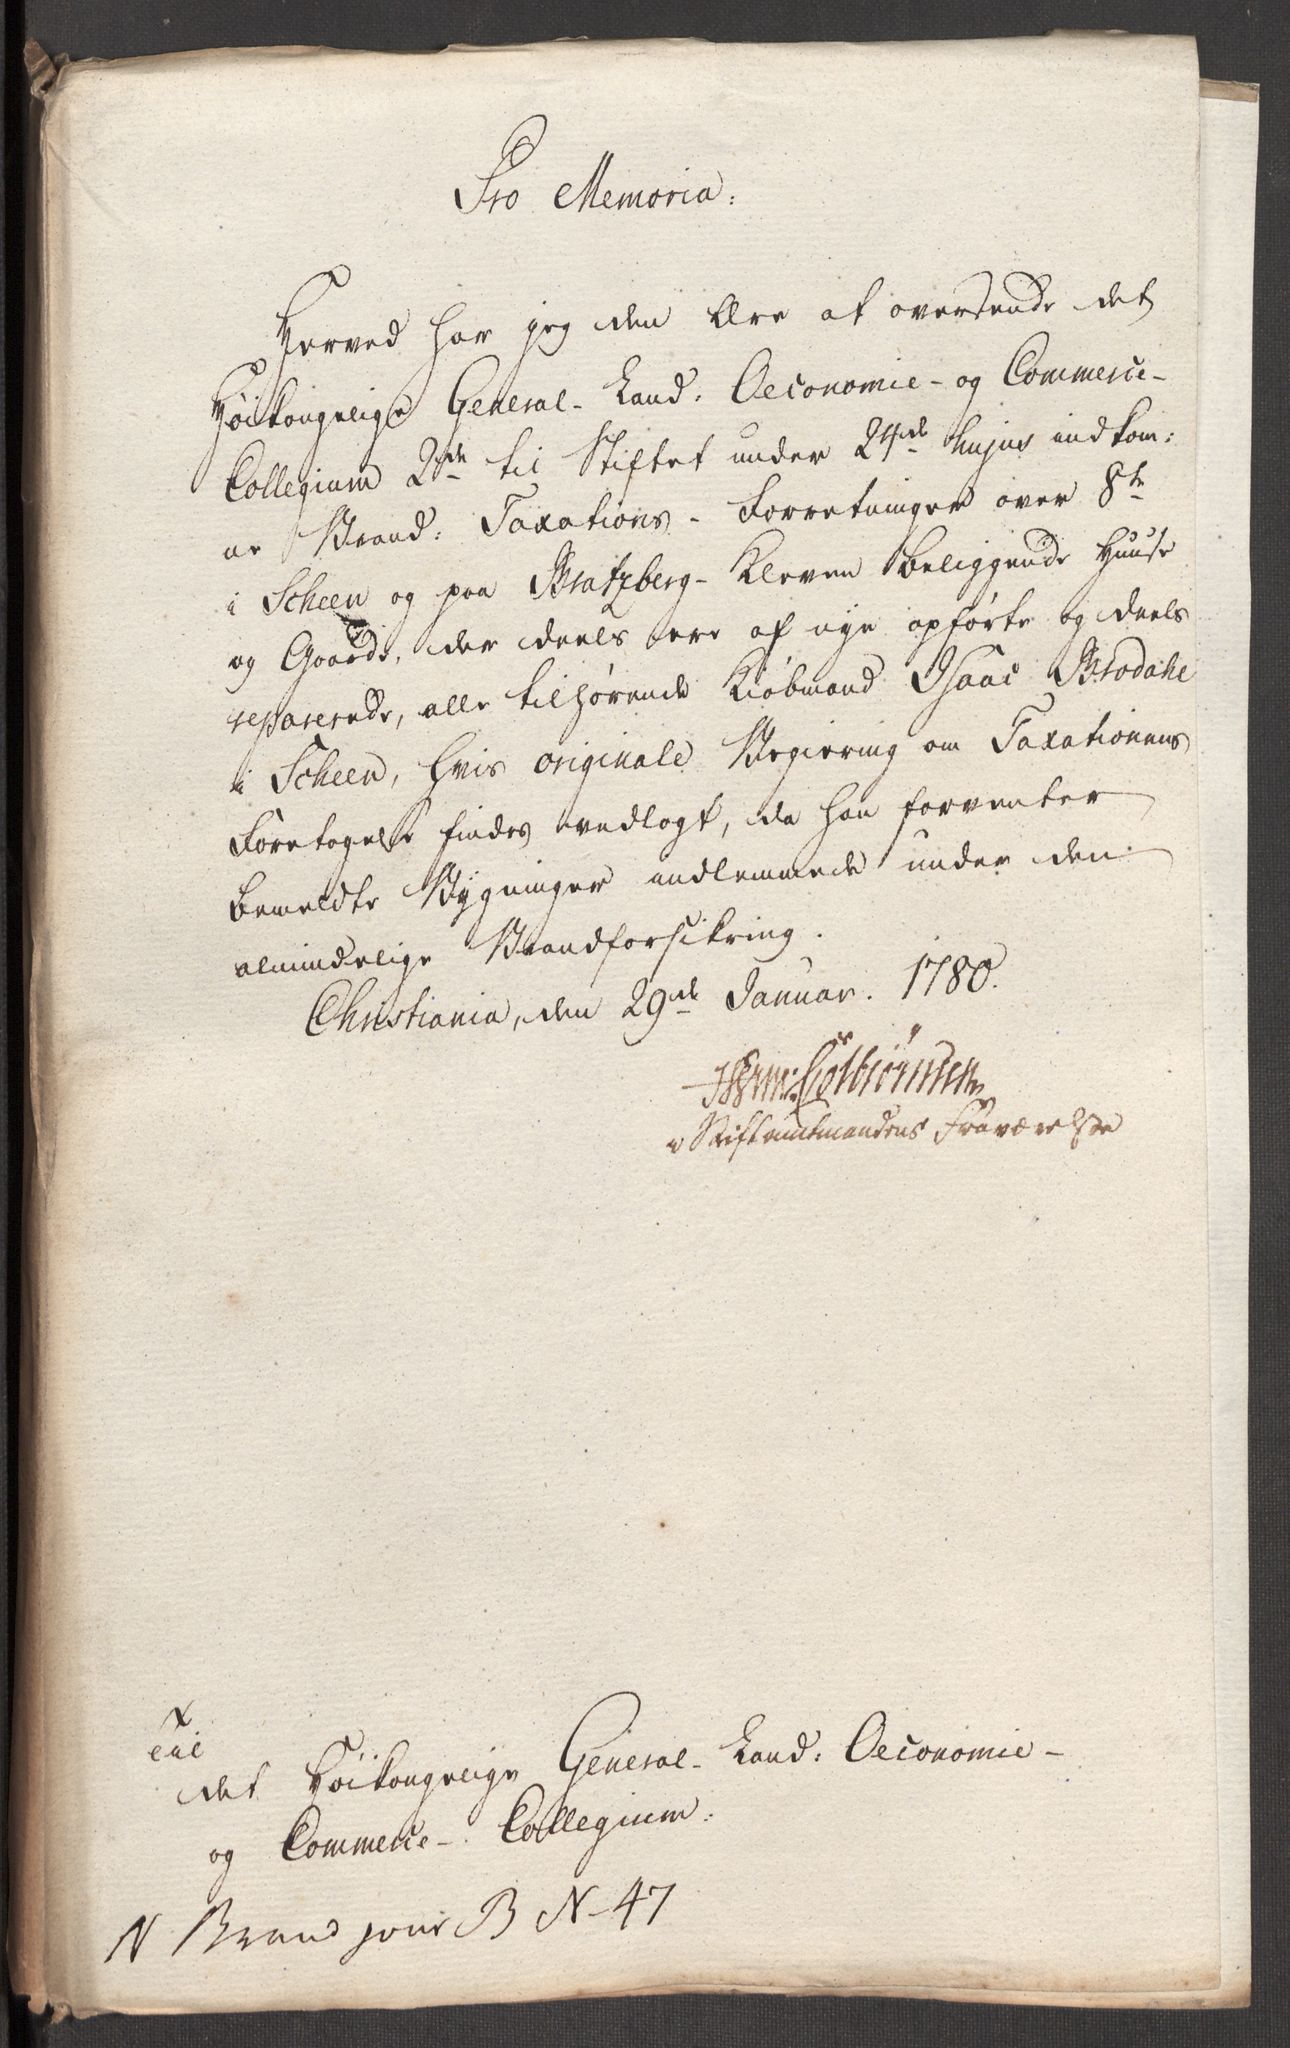 Pro Memoria:
Herved har jeg den Ære at oversende det
Høikongelige General-Land: Oeconomie- og Commerce-
Collegium 2de til Stiftet under 24de hujus indkom:
ne Brand: Taxations-Forretninger over 8te
i Scheen og paa Bratzberg-Kleven beliggende Huuse
og Gaarde, der deels ere af nye opførte og deels
reparerede, alle tilhørende Kiøbmand Isaac Brodahl
i Scheen, hvis originale Begiering om Taxationens
Foretagelse findes vedlagt, da han forventer
bemeldte Bygninger indlemmede under den
almindelige Brandforsikring.
Christiania, den 29de Januar. 1780.
Herm: Colbiørnsen
i Stiftamtmandens Fraværelse
Til
det Høikongelige General-Land: Oeconomie-
og Commerce-Collegium:
N Brand jour B N-47